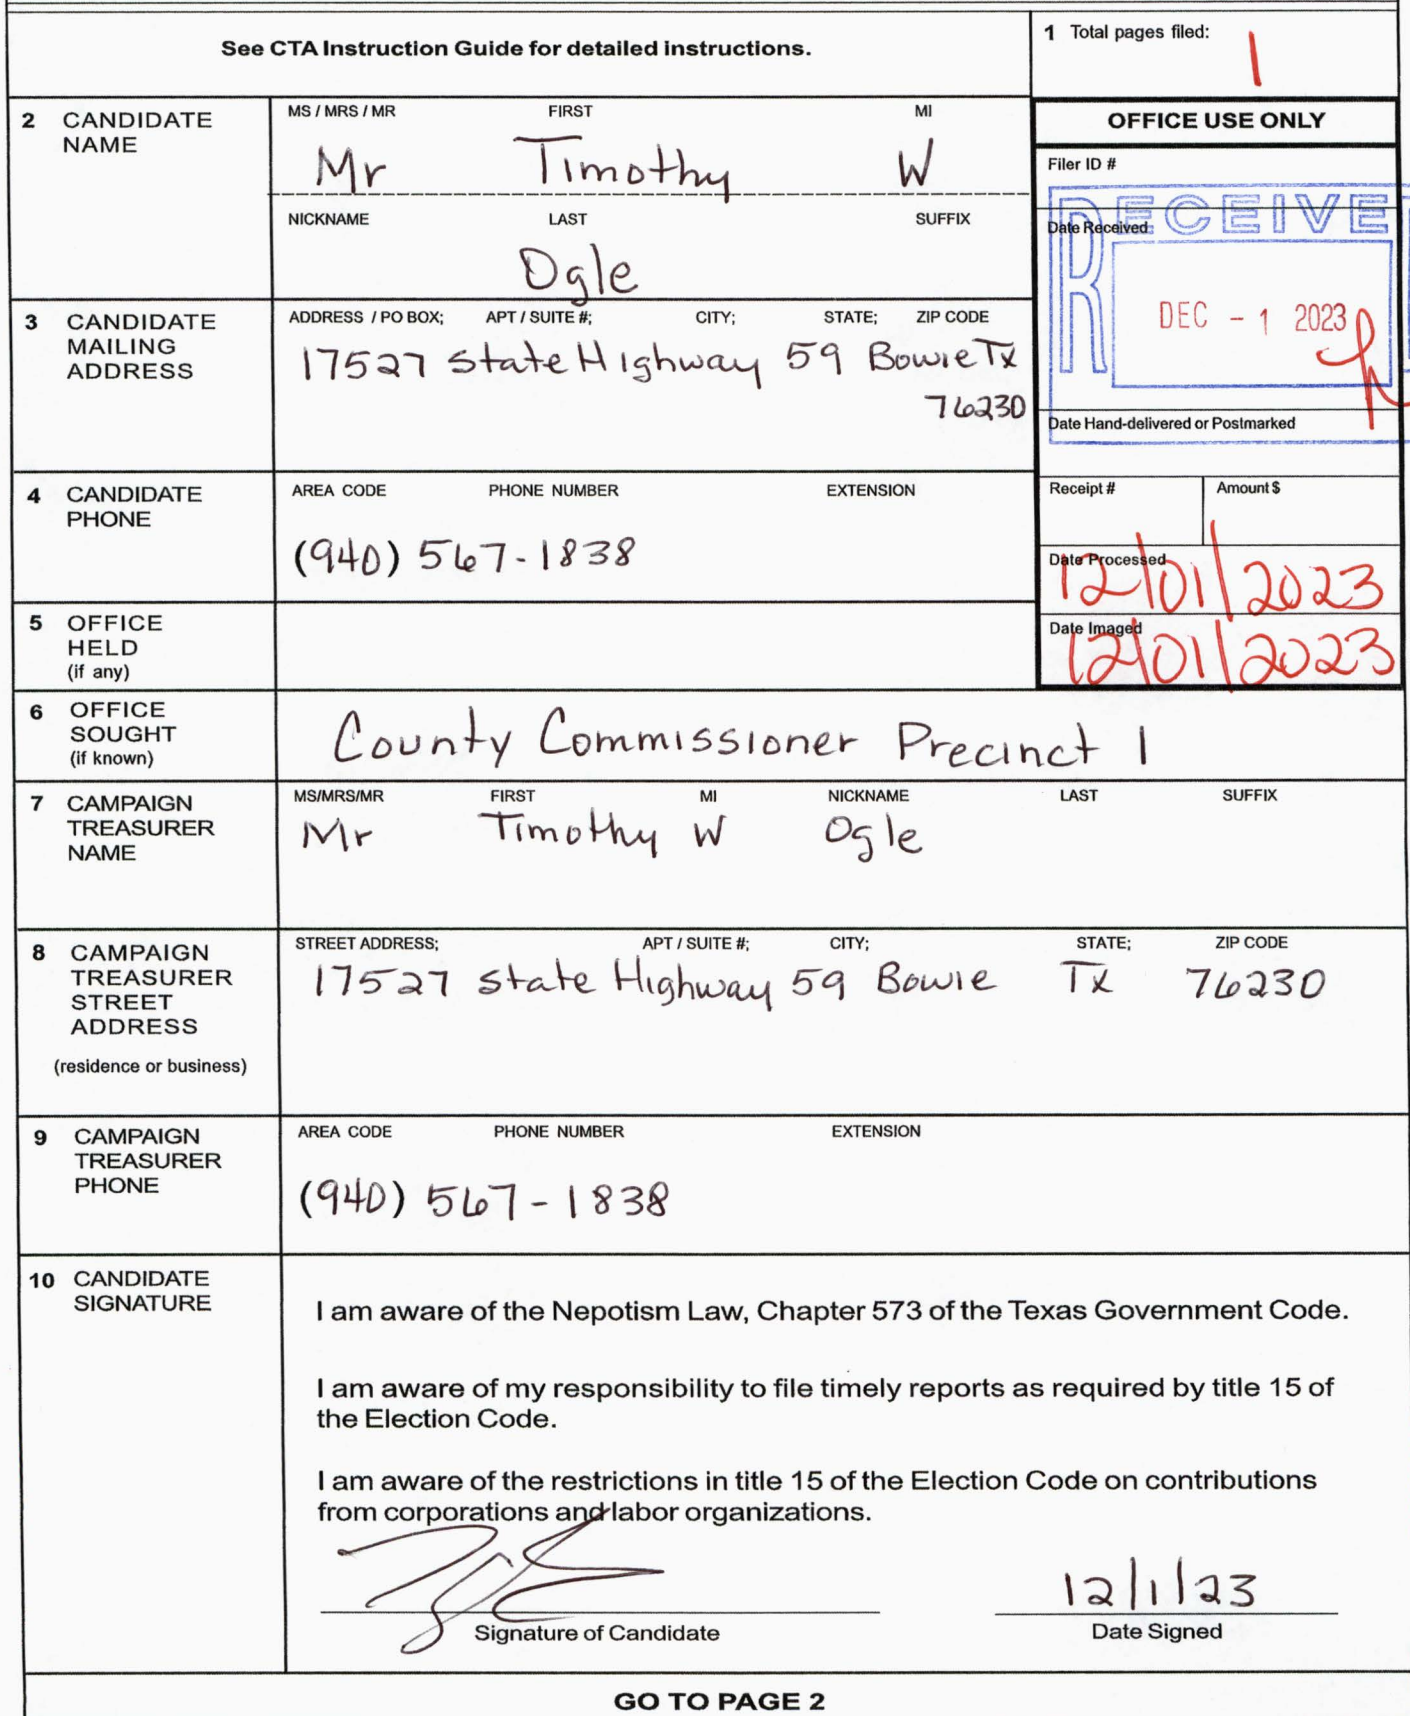 See CTA Instruction Guide for detailed instructions.
1 Total pages filed:
1
2 CANDIDATE NAME
MS / MRS / MR FIRST MI
Mr Timothy W
NICKNAME LAST SUFFIX
Ogle
OFFICE USE ONLY
Filer ID #
RECEIVE
Date Received
DEC - 1 2023
Date Hand-delivered or Postmarked
Receipt # Amount $
Date Processed
12/01/2023
Date Imaged
12/01/2023
3 CANDIDATE MAILING ADDRESS
ADDRESS / PO BOX; APT / SUITE #; CITY; STATE; ZIP CODE
17527 State Highway 59 Bowie Tx
76230
4 CANDIDATE PHONE
AREA CODE PHONE NUMBER EXTENSION
(940) 567-1838
5 OFFICE HELD (if any)
6 OFFICE SOUGHT (if known)
County Commissioner Precinct 1
7 CAMPAIGN TREASURER NAME
MS/MRS/MR FIRST MI NICKNAME LAST SUFFIX
Mr Timothy W Ogle
8 CAMPAIGN TREASURER STREET ADDRESS
(residence or business)
STREET ADDRESS; APT / SUITE #; CITY; STATE; ZIP CODE
17527 State Highway 59 Bowie Tx 76230
9 CAMPAIGN TREASURER PHONE
AREA CODE PHONE NUMBER EXTENSION
(940) 567-1838
10 CANDIDATE SIGNATURE
I am aware of the Nepotism Law, Chapter 573 of the Texas Government Code.
I am aware of my responsibility to file timely reports as required by title 15 of
the Election Code.
I am aware of the restrictions in title 15 of the Election Code on contributions
from corporations and labor organizations.
12/1/23
Signature of Candidate Date Signed
GO TO PAGE 2